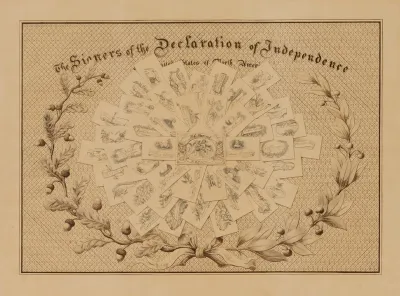 The Signers of the Declaration of Independence
United States of North America